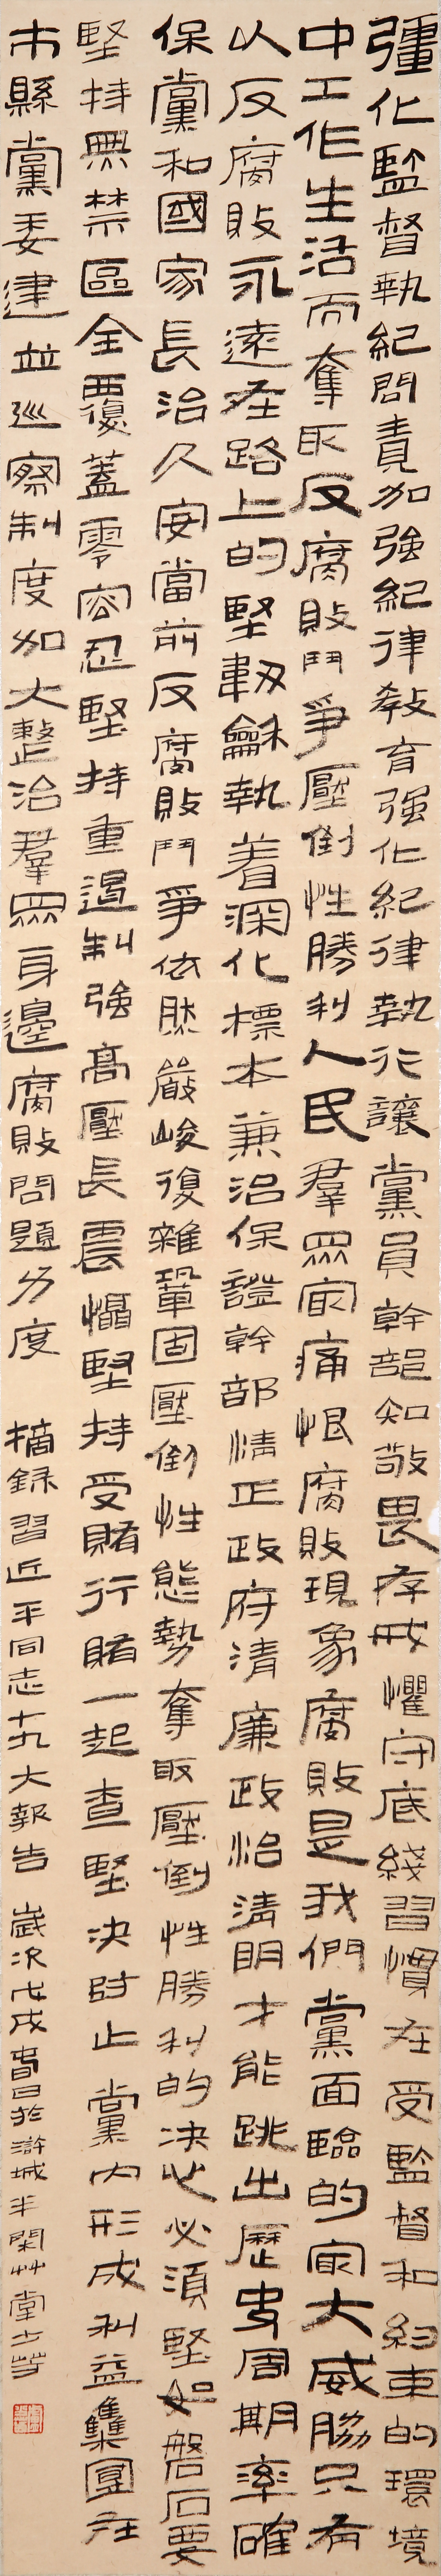 彊化監督執紀問責加強紀律教育强化紀律執行讓黨員幹部知敬畏存戒懼守底綫習慣在受監督和約束的環境
中工作生活而奪取反腐敗鬥爭壓倒性勝利人民羣眾最痛恨腐敗現象腐敗是我們黨面臨的最大威脇只有
以反腐敗永遠在路上的堅韌龢執着深化標本兼治保證幹部清正政府清廉政治清明才能跳出歷史周期率確
保黨和國家長治久安當前反腐敗鬥爭依肰嚴峻復雜鞏固壓倒性態勢奪取壓倒性勝利的決心必須堅如磐石要
堅持無禁區全覆蓋零容忍堅持重遏制強高壓長震懾堅持受賄行賄一起查堅決防止黨内形成利益集團在
市縣黨委建立巡察制度加大整治羣眾身邊腐敗問題力度 摘録習近平同志十九大報告 歲次戊戌春日於滸城半閑艸堂